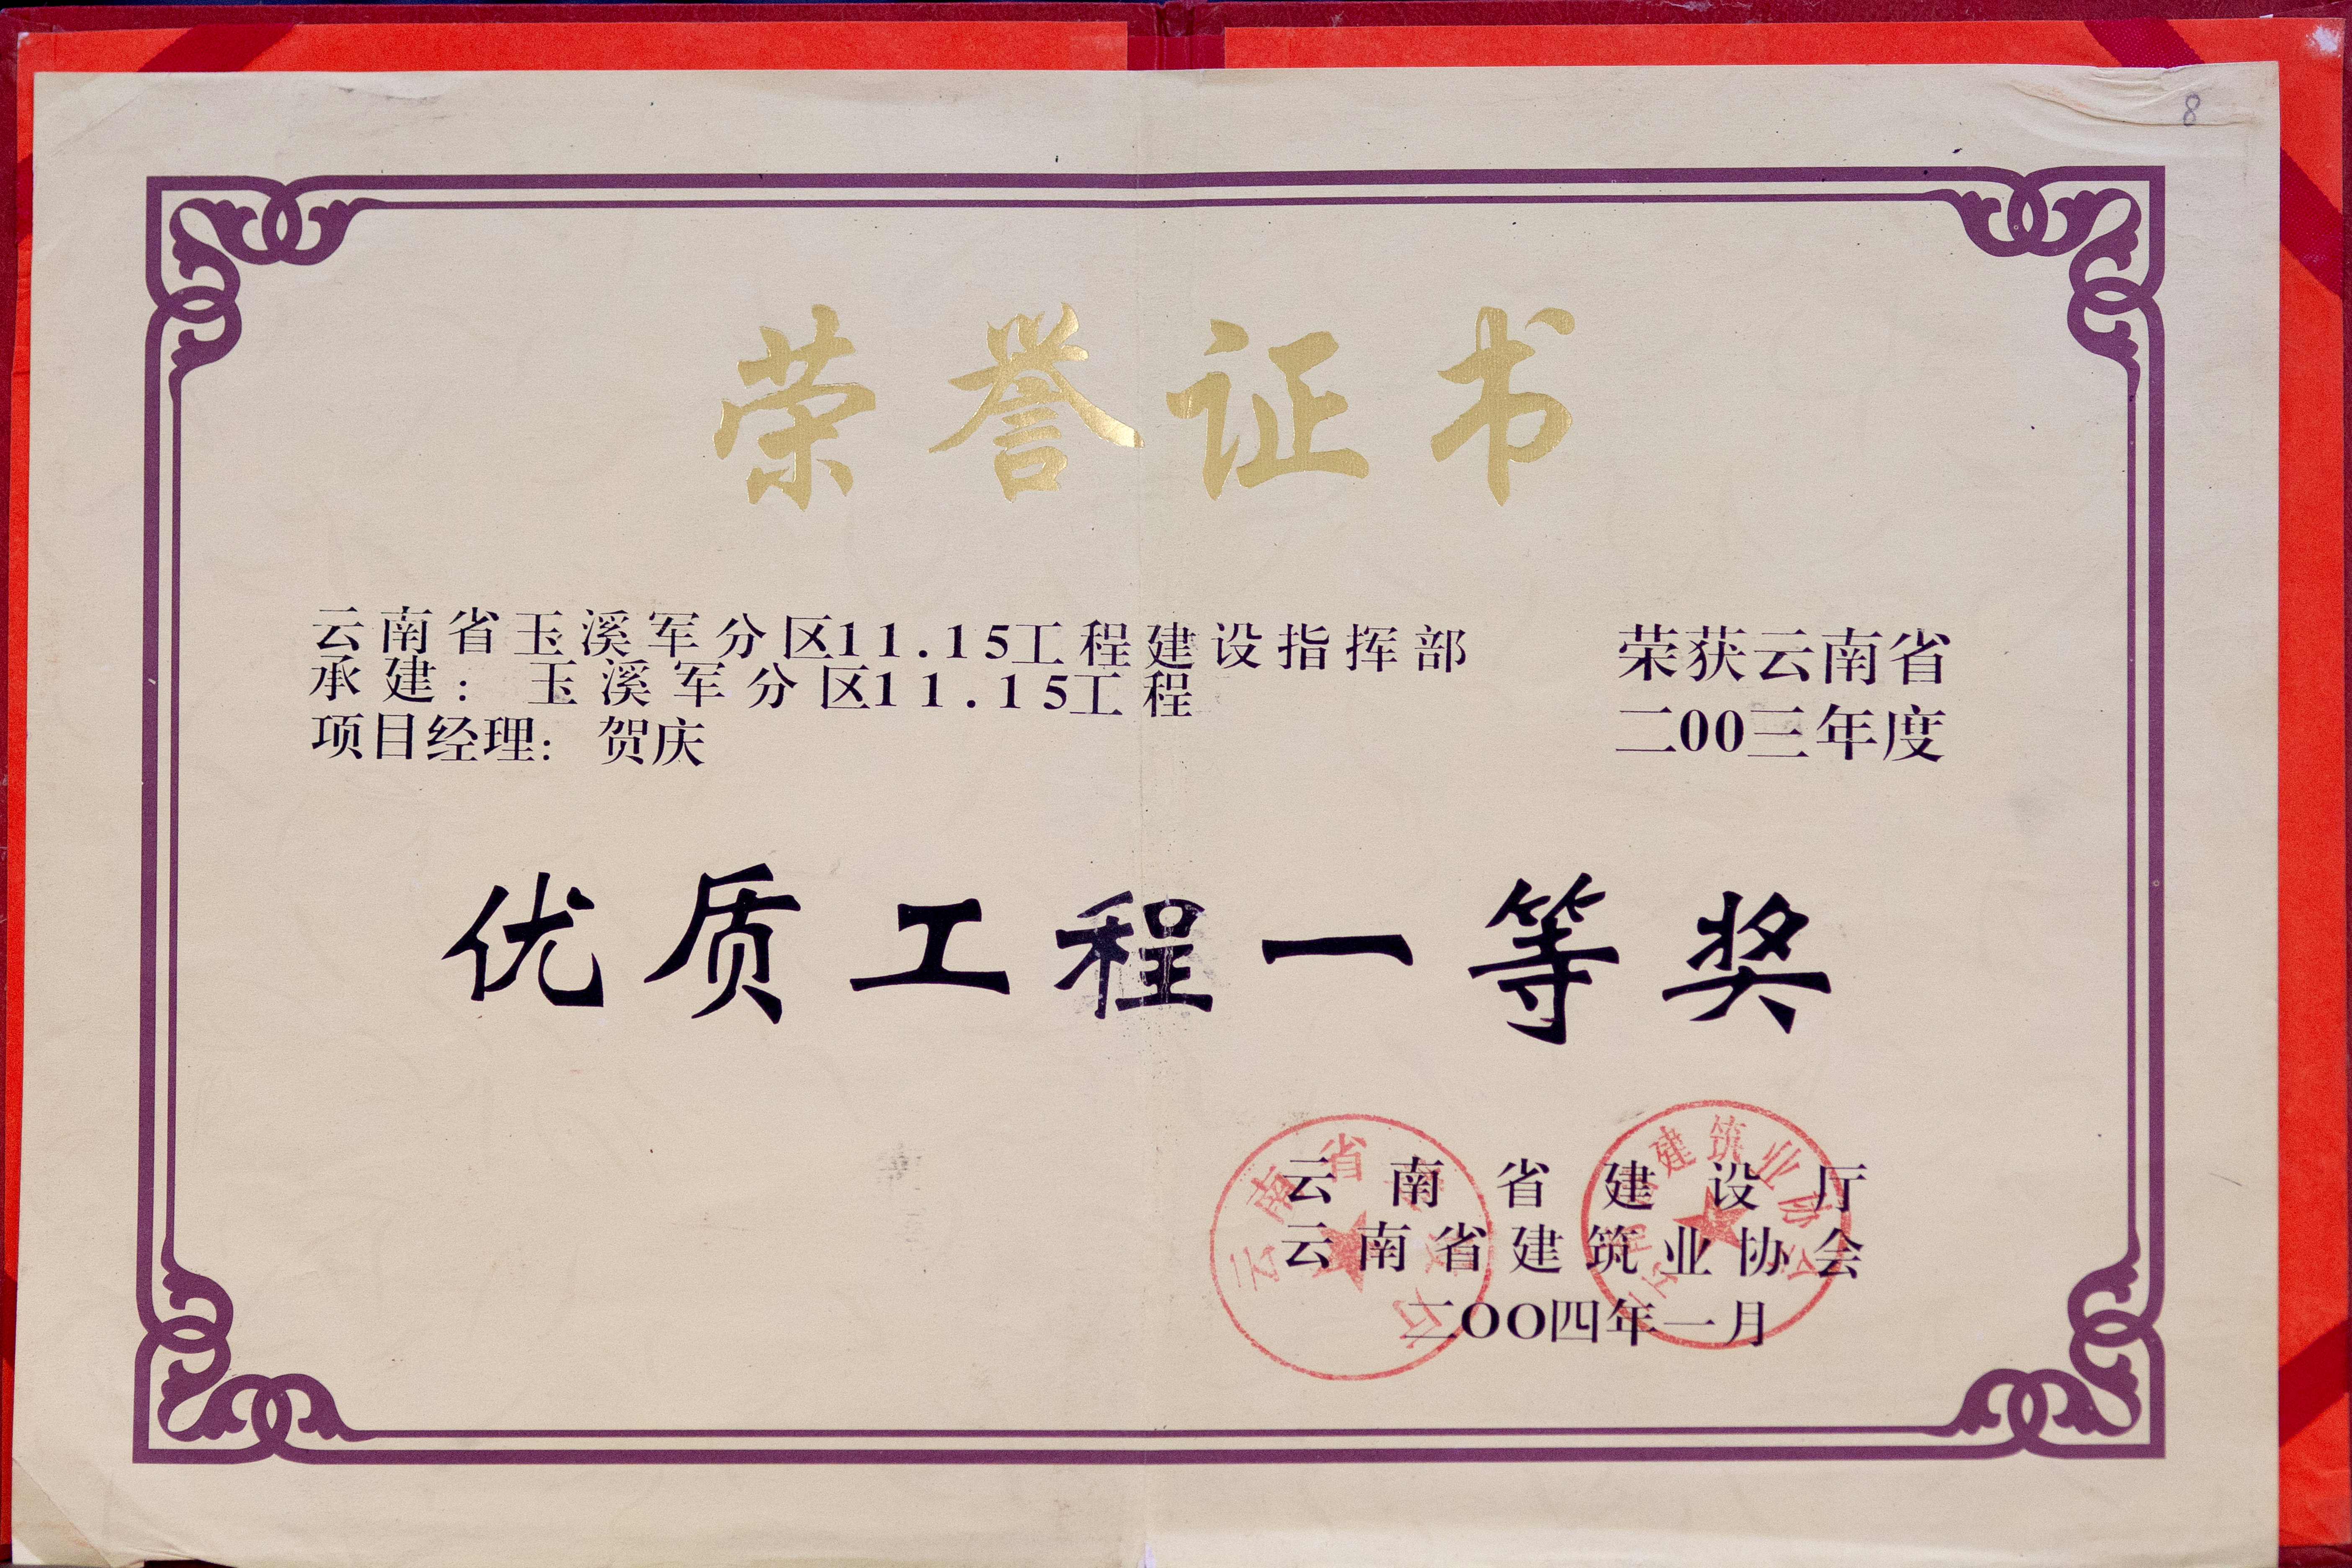 8
荣誉证书
云南省玉溪军分区11.15工程建设指挥部
承建：玉溪军分区11.15工程
项目经理：贺庆
荣获云南省
二00三年度
优质工程一等奖
云南省建设厅
云南省建筑业协会
二OO四年一月
云南省
建筑业协会